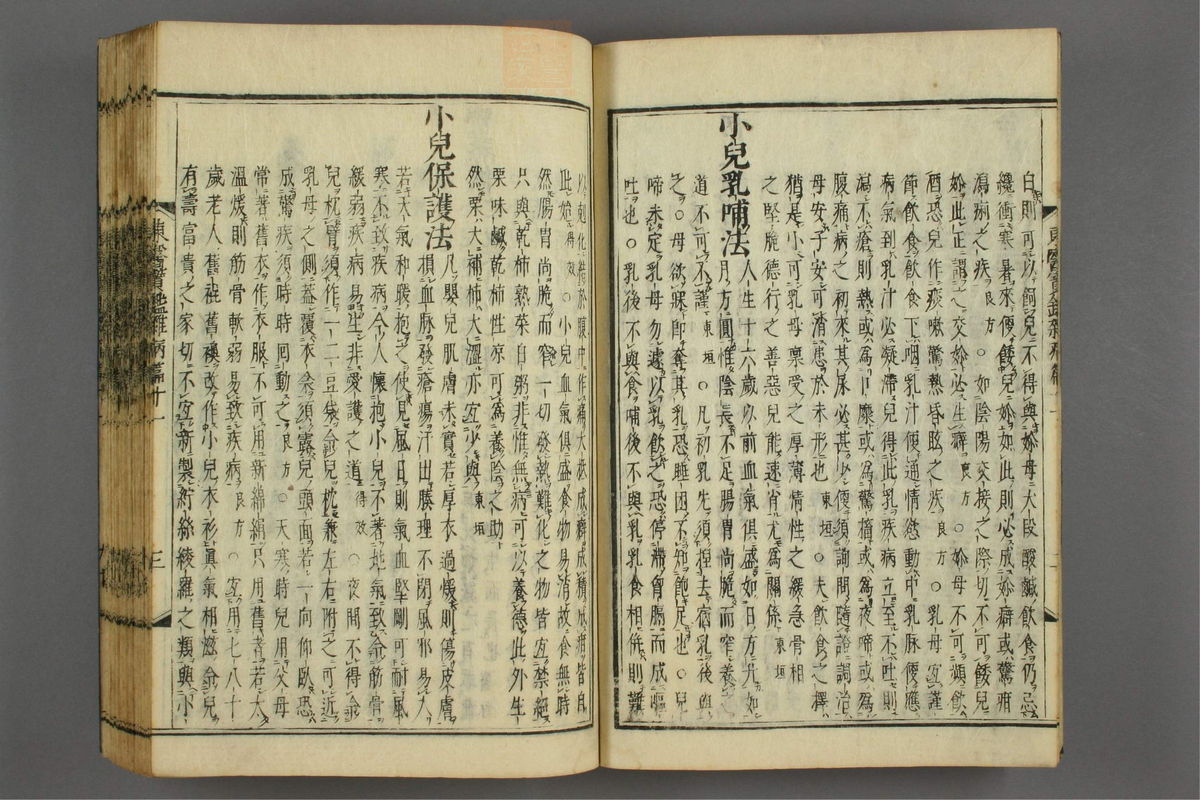 白則可以飼兒不得與妳母大段酸鹹飲食仍忌
纔衝寒暑來便餧兒妳如此則必成妳癖或驚疳
瀉痢之疾良方○如陰陽交接之際切不可餧兒
妳此正謂之交妳必生癖良方○妳母不可頻飲
酒恐兒作痰嗽驚熱昏眩之疾良方○乳母宜謹
節飲食飲食下咽乳汁便通情慾動中乳脉便應
病氣到乳汁必凝滯兒得此乳疾病立至不吐則
瀉不瘡則熱或為口糜或為驚搐或為夜啼或為
腹痛病之初來其尿必甚少便須詢問隨證調治
母安子安可消患於未形也東垣○夫飲食之擇
猶是小可乳母稟受之厚薄情性之緩急骨相
之堅脆德行之善惡兒能速肖尤為關係東垣
小兒乳哺法
人生十六歲以前血氣俱盛如日方升如
月方圓惟陰長不足腸胃尚脆而窄養之
道不可不謹東垣○凡初乳先須捏去宿乳後與
之○母欲寐卽奪其乳恐睡困不知飽足也○兒
啼未定乳母勿遽以乳飲之恐停滯胷膈而成嘔
吐也○乳後不與食哺後不與乳乳食相倂則難
以剋化結於腹中作痛大抵成癖成積成疳皆自
此始得效○小兒血氣俱盛食物易消故食無時
然腸胃尚脆而窄一切發熱難化之物皆宜禁絶
只與乾柿熟菜白粥非惟無病可以養德此外生
栗味鹹乾柿性凉可為養陰之助
然栗大補柿大澁亦宜少與東垣
小兒保護法
凡嬰兒肌膚未實若厚衣過煖則傷皮膚
損血脉發瘡瘍汗出腠理不閉風邪易入
若天氣和暖抱之使見風日則氣血堅剛可耐風
寒不致疾病今人懷抱小兒不著地氣致令筋骨
緩弱疾病易生非愛護之道得效○夜間不得令
兒枕臂須作一二豆袋令兒枕兼左右附之可近
乳母之側蓋覆衣衾須露兒頭面若一向仰臥恐
成驚疾須時回動之良方○天寒時兒用父母
常著舊衣作衣服不可用新綿絹只用舊者若太
溫煖則筋骨軟弱易致疾病良方○宜用七八十
歲老人舊裙舊襖改作小兒衣衫眞氣相滋令兒
有壽富貴之家切不宜新製紵絲綾羅之類與小
東醫寶鑑雜病篇十一
三